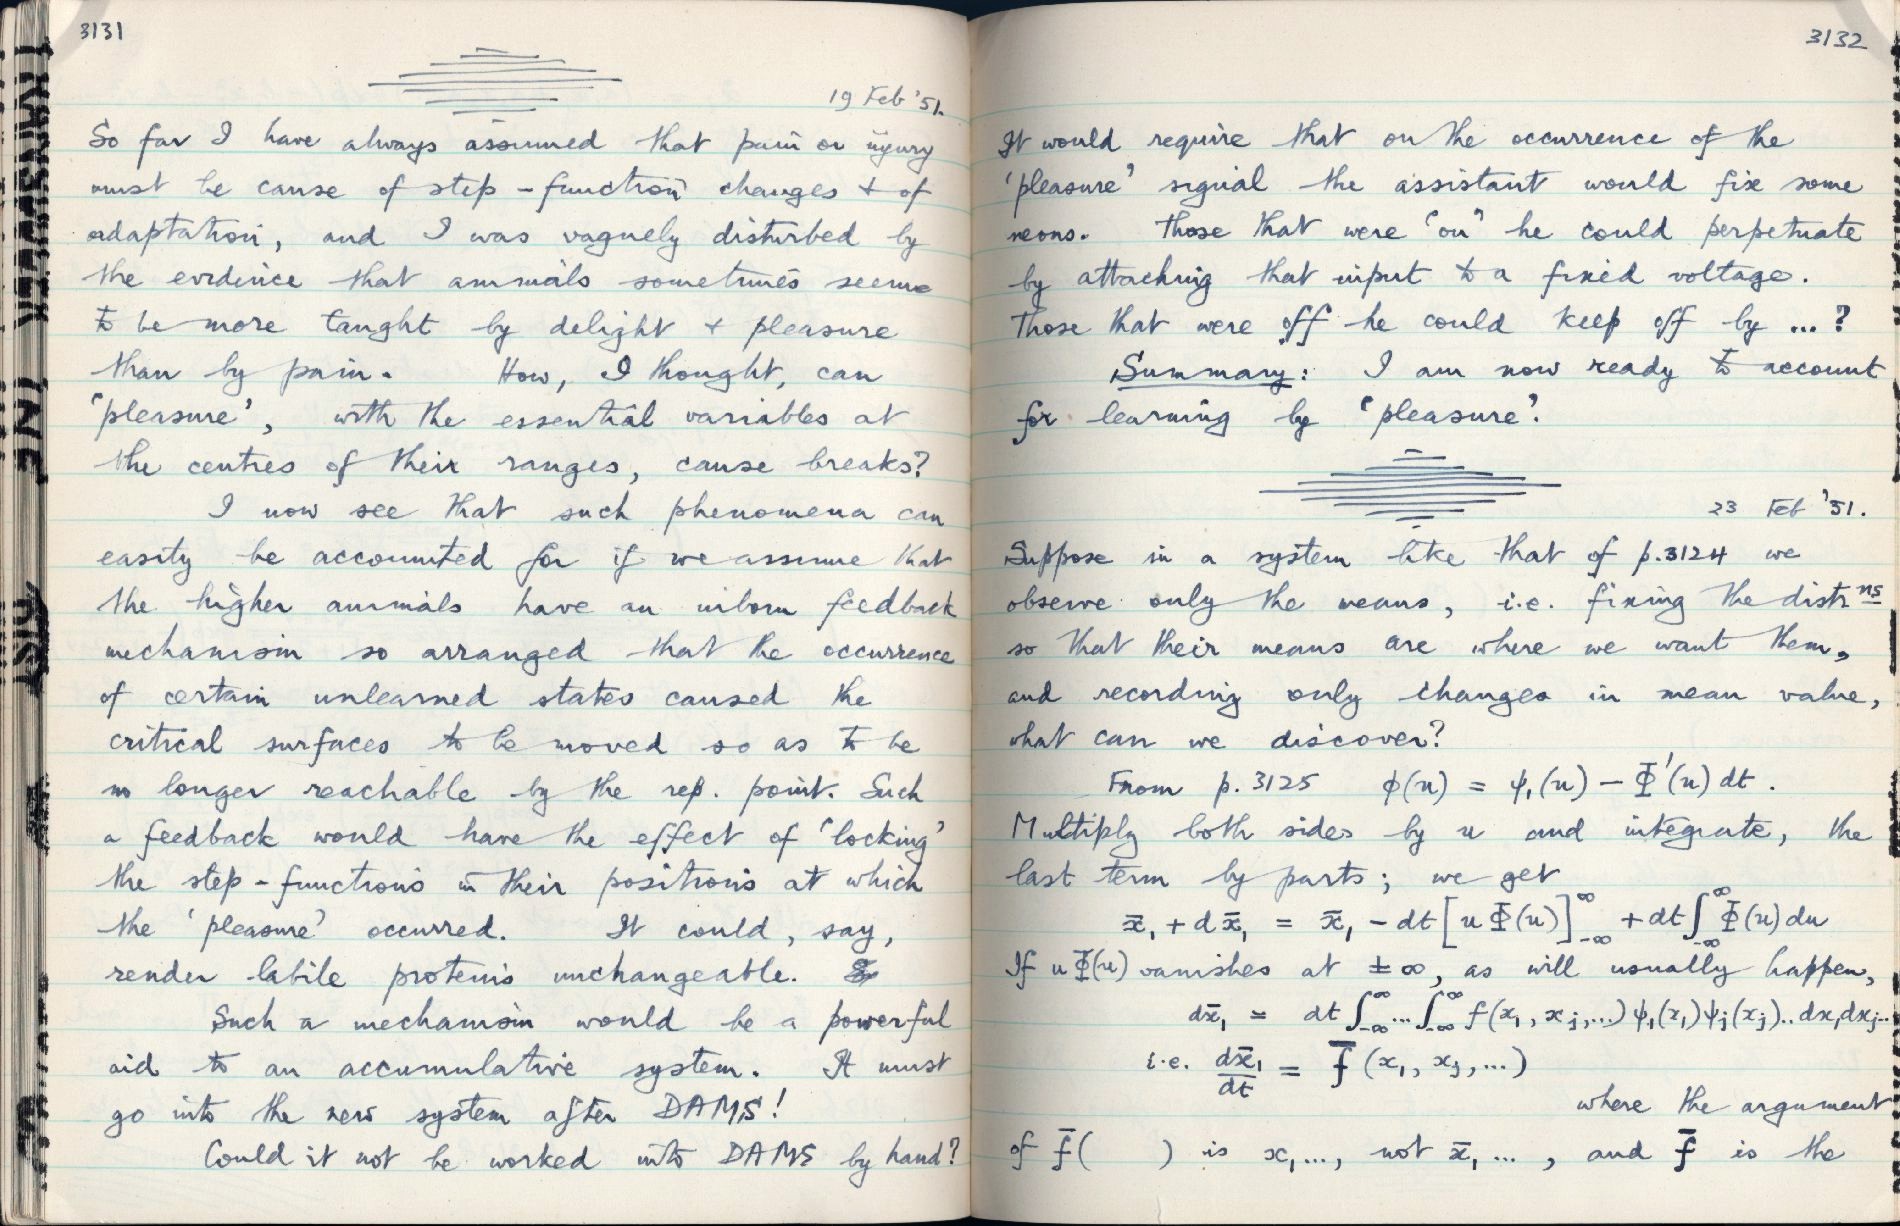 3131
19 Feb '51.
So far I have always assumed that pain or injury
must be cause of step-function changes & of
adaptation, and I was vaguely disturbed by
the evidence that animals sometimes seem
to be more taught by delight & pleasure
than by pain. How, I thought, can
'pleasure', with the essential variables at
the centres of their ranges, cause breaks?
I now see that such phenomena can
easily be accounted for if we assume that
the higher animals have an inborn feedback
mechanism so arranged that the occurrence
of certain unlearned states caused the
critical surfaces to be moved so as to be
no longer reachable by the rep. point. Such
a feedback would have the effect of 'locking'
the step-functions in their positions at which
the 'pleasure' occurred. It could, say,
render labile proteins unchangeable.
Such a mechanism would be a powerful
aid to an accumulative system. It must
go into the new system after DAMS!
Could it not be worked into DAMS by hand?
3132
It would require that on the occurrence of the
'pleasure' signal the assistant would fix some
neons. Those that were "on" he could perpetuate
by attaching that input to a fixed voltage.
Those that were off he could keep off by ... ?
Summary: I am now ready to account
for learning by 'pleasure'.
23 Feb '51.
Suppose in a system like that of p.3124 we
observe only the means, i.e. fixing the distrns
so that their means are where we want them,
and recording only changes in mean value,
what can we discover?
From p. 3125 ϕ(u) = ψ₁(u) − Φ'(u) dt .
Multiply both sides by u and integrate, the
last term by parts; we get
x̄₁ + dx̄₁ = x̄₁ − dt[u Φ(u)]^∞_−∞ + dt∫^∞_−∞ Φ(u) du
If u Φ(u) vanishes at ± ∞, as will usually happen,
dx̄₁ = dt ∫^∞_−∞ ... ∫^∞_−∞ f(x₁, xⱼ, ...) ψ₁(x₁) ψⱼ(xⱼ).. dx₁ dxⱼ..
i.e. dx̄₁/dt = f̄ (x₁, xⱼ, ...)
where the argument
of f̄( ) is x₁..., not x̄₁ ... , and f̄ is the